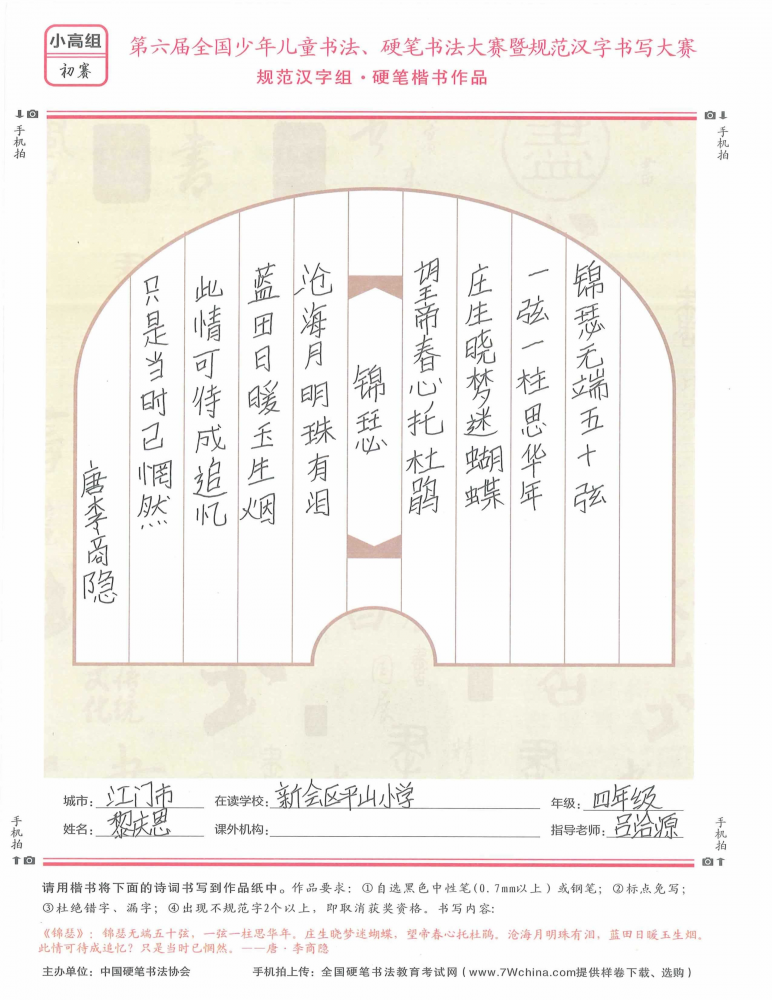 小高组
初赛
第六届全国少年儿童书法、硬笔书法大赛暨规范汉字书写大赛
规范汉字组·硬笔楷书作品
手机拍
手机拍
锦瑟无端五十弦
一弦一柱思华年
庄生晓梦迷蝴蝶
望帝春心托杜鹃
锦瑟
沧海月明珠有泪
蓝田日暖玉生烟
此情可待成追忆
只是当时已惘然
唐李商隐
城市：江门市 在读学校：新会区平山小学 年级：四年级
姓名：黎庆恩 课外机构： 指导老师：吕洽源
手机拍
手机拍
请用楷书将下面的诗词书写到作品纸中。作品要求：①自选黑色中性笔(0.7mm以上)或钢笔；②标点免写；
③杜绝错字、漏字；④出现不规范字2个以上，即取消获奖资格。书写内容：
《锦瑟》：锦瑟无端五十弦，一弦一柱思华年。庄生晓梦迷蝴蝶，望帝春心托杜鹃。沧海月明珠有泪，蓝田日暖玉生烟。
此情可待成追忆？只是当时已惘然。——唐·李商隐
主办单位：中国硬笔书法协会 手机拍上传：全国硬笔书法教育考试网（www.7Wchina.com提供样卷下载、选购）